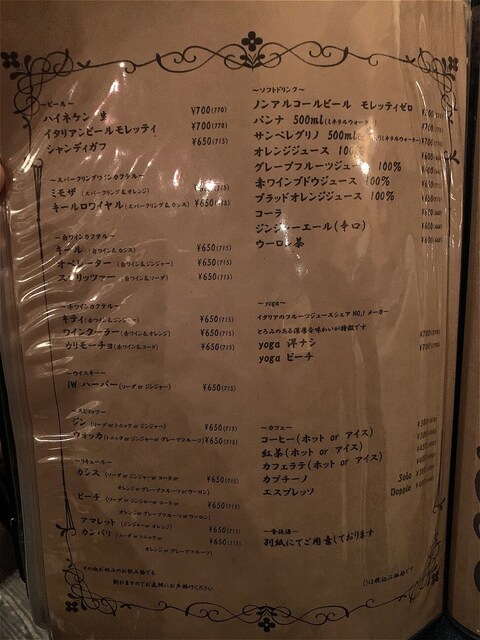 ~ビール~
ハイネケン 生 ¥700(770)
イタリアンビールモレッティ ¥700(770)
シャンディガフ ¥650(715)
~スパークリングワインカクテル~
ミモザ (スパークリング&オレンジ) ¥650(715)
キールロワイヤル(スパークリング&カシス) ¥650(715)
~白ワインカクテル~
キール (白ワイン&カシス) ¥650(715)
オペレーター (白ワイン&ジンジャー) ¥650(715)
スプリッツァー (白ワイン&ソーダ) ¥650(715)
~赤ワインカクテル~
キティ(赤ワイン&ジンジャー) ¥650(715)
ワインクーラー(赤ワイン&オレンジ) ¥650(715)
カリモーチョ(赤ワイン&コーラ) ¥650(715)
~ウイスキー~
IWハーパー(ソーダorジンジャー) ¥650(715)
~スピリッツ~
ジン (ソーダorトニックorジンジャー) ¥650(715)
ウォッカ(トニックorジンジャーorグレープフルーツ) ¥650(715)
~リキュール~
カシス (ソーダorジンジャーorコーラor ¥650(715)
オレンジorグレープフルーツorウーロン)
ピーチ (ソーダorジンジャーorコーラor ¥650(715)
オレンジorグレープフルーツorウーロン)
アマレット (ジンジャーorオレンジ) ¥650(715)
カンパリ (ソーダorトニックor ¥650(715)
オレンジorグレープフルーツ)
その他お好みのお飲み物でも
創りますのでお気軽にお声掛けください
~ソフトドリンク~
ノンアルコールビール モレッティゼロ
パンナ 500ml(ミネラルウォーター)
サンペレグリノ 500ml (ミネラルウォーター)
オレンジジュース 100%
グレープフルーツジュース 100%
赤ワインブドウジュース 100%
ブラッドオレンジジュース 100%
コーラ
ジンジャーエール(辛口)
ウーロン茶
~yoga~
イタリアのフルーツジュースシェアNO,1メーカー
とろみのある濃厚な味わいが特徴です
yoga 洋ナシ
yoga ピーチ
~カフェ~
コーヒー(ホット or アイス)
紅茶(ホット or アイス)
カフェラテ(ホット or アイス)
カプチーノ
エスプレッソ Solo
Doppio
~食後酒~
別紙にてご用意しております
()は税込価格です